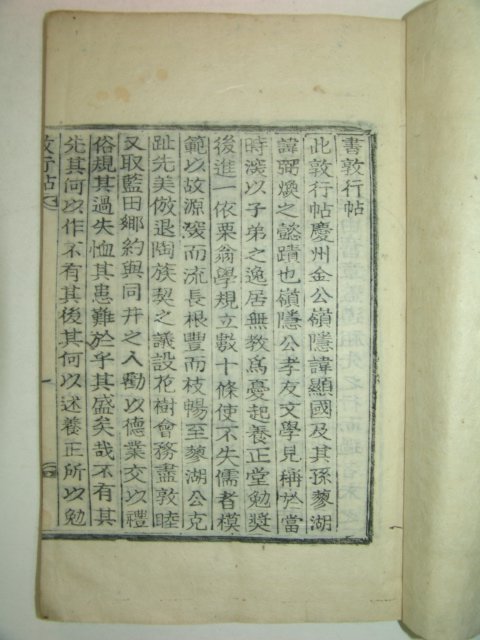 書敦行帖
此敦行帖慶州金公嶺隱諱顯國及其孫蓼湖
諱弼煥之懿蹟也嶺隱公孝友文學見稱於當
時深以子弟之逸居無教爲憂起養正堂勉奬
後進一依栗翁學規立數十條使不失儒者模
範以故源深而流長根豐而枝暢至蓼湖公克
趾先美倣退陶族契之議設花樹會務盡敦睦
又取藍田鄉約與同井之人勸以德業交以禮
俗規其過失恤其患難於乎其盛矣哉不有其
先其何以作不有其後其何以述養正所以勉
敦行帖